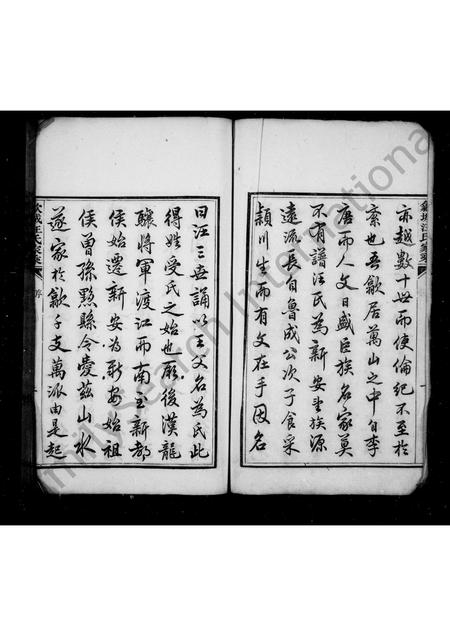 亦越數十世而使倫紀不至於
紊也吾歙居萬山之中自李
唐而人文日盛臣族名家莫
不有譜汪氏為新安望族源
遠流長自魯成公次子食采
潁川生而有文在手因名
曰汪三世誦以王父名為氏此
得姓受氏之始也厥後漢龍
驤將軍渡江而南至新都
侯始遷新安為新安始祖
侯曾孫黟縣令愛茲山水
遂家於歙千支萬派由是起
序
FamilySearch International